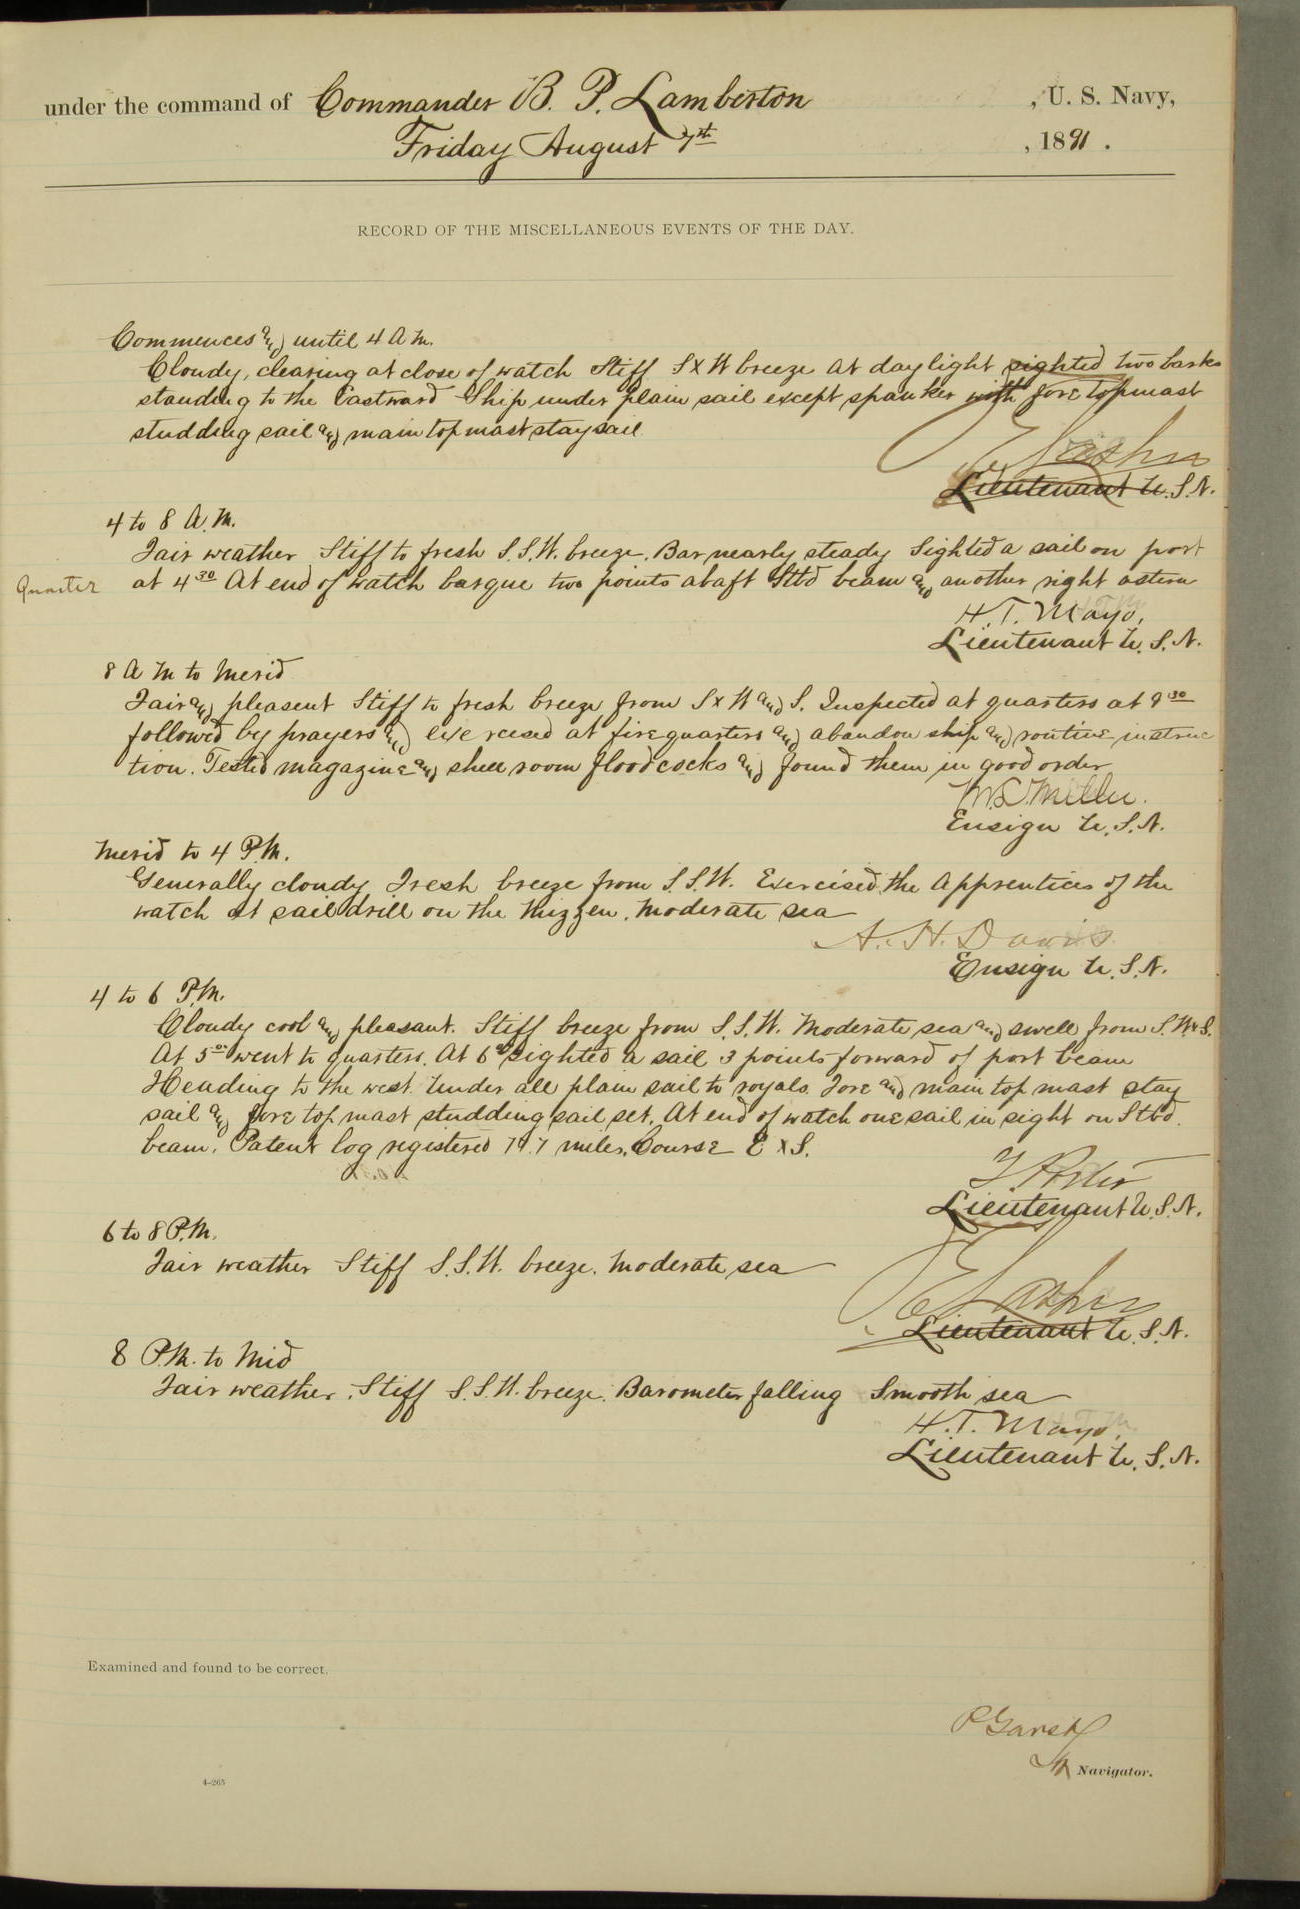 under the command of Commander B. P. Lamberton , U. S. Navy,
Friday August 7th , 1891 .
RECORD OF THE MISCELLANEOUS EVENTS OF THE DAY.
Commences and until 4 A M.
Cloudy, clearing at close of watch Stiff S x W breeze At daylight sighted two barks
standing to the Eastward Ship under plain sail except spanker with fore topmast
studding sail and main topmast staysail
Lieutenant U. S. N.
4 to 8 A. M.
Fair weather Stiff to fresh S. S. W. breeze. Bar nearly steady Sighted a sail on port
Quarter at 4 30 At end of watch barque two points abaft Stbd beam and another right astern
H. T. Mayo,
Lieutenant U. S. N.
8 A M to Merid
Fair and pleasent Stiff to fresh breeze from S x W and S. Inspected at quarters at 9 30
followed by prayers and exercised at fire quarters and abandon ship and routine instruc
tion. Tested magazine and shell room flood cocks and found them in good order
W. S. Miller.
Ensign U. S. N.
Merid to 4 P.M.
Generally cloudy Fresh breeze from S. S. W. Exercised the Apprentices of the
watch at sail drill on the Mizzen. Moderate sea
A. H. Davis
Ensign U. S. N.
4 to 6 P.M.
Cloudy cool and pleasant. Stiff breeze from S. S. W. Moderate sea and swell from S. W x S.
At 5 went to quarters. At 6 sighted a sail 3 points forward of port beam
Heading to the west. Under all plain sail to royals. Fore and main top mast stay
sail and fore top mast studding sail set. At end of watch one sail in sight on Stbd.
beam. Patent log registered miles. Course E x S.
Lieutenant U. S. N.
6 to 8 P.M.
Fair weather Stiff S. S. W. breeze. Moderate sea
Lieutenant U. S. N.
8 P.M. to Mid
Fair weather. Stiff S. S. W. breeze. Barometer falling Smooth sea
H. T. Mayo,
Lieutenant U. S. N.
Examined and found to be correct.
Navigator.
4-265